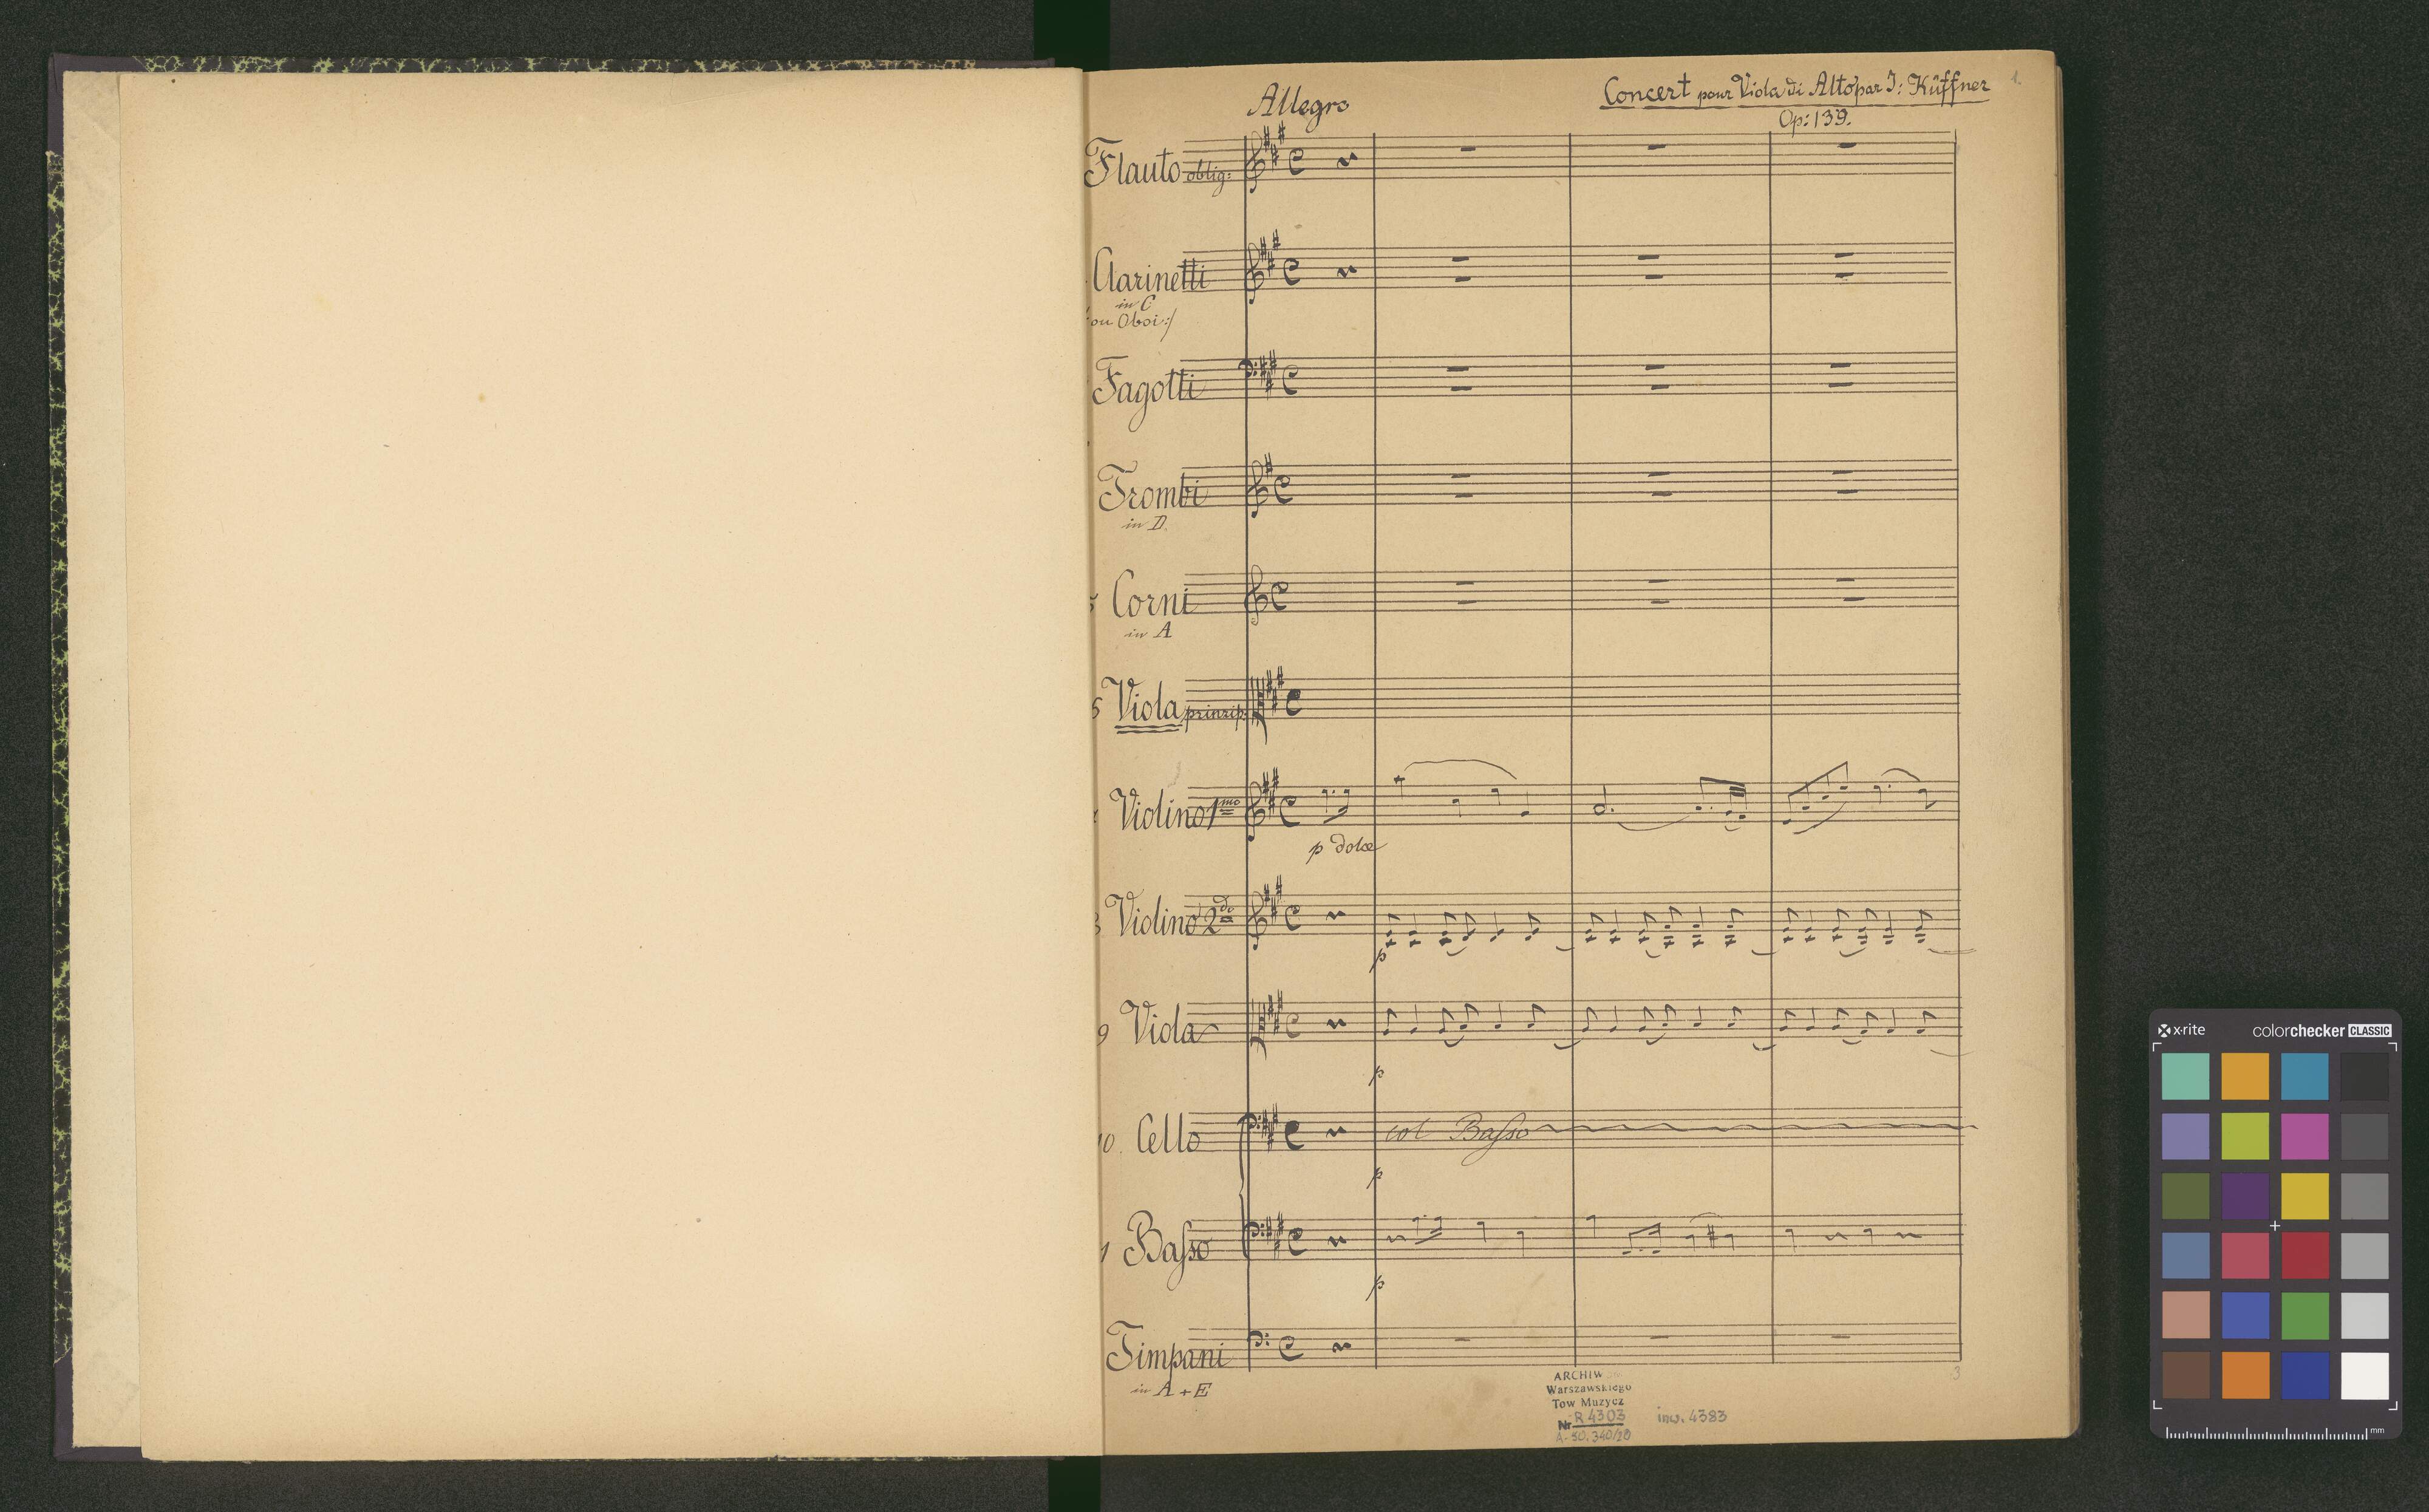 Allegro
Concert pour Viola di Alto par J: Küffner
1.
Op: 139.
Flauto oblig:
Clarinetti
in C
ou Oboi:/
Fagotti
Trombi
in D.
Corni
in A
Viola prinzip:
Violino 1mo
p dolce
Violino 2do
p
9 Viola
p
10. Cello
col Baſso
p
Baſso
p
Timpani
in A + E
3
ARCHIW
Warszawskiego
Tow Muzycz
Nr R 4303
inw. 4383
x-rite
colorchecker CLASSIC
mm